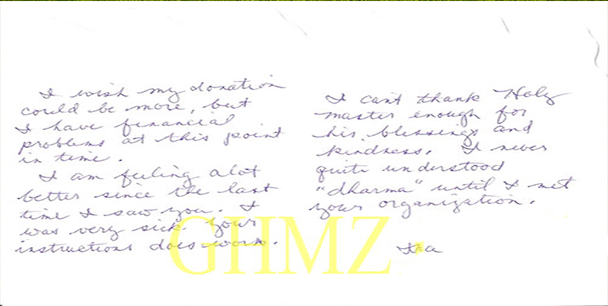 I wish my donation
could be more, but
I have financial
problems at this point
in time.
I am feeling alot
better since the last
time I saw you. I
was very sick. Your
instructions does work.
I can't thank Holy
master enough for
his blessings and
kindness. I never
quite understood
"dharma" until I met
your organization.
GHMZ